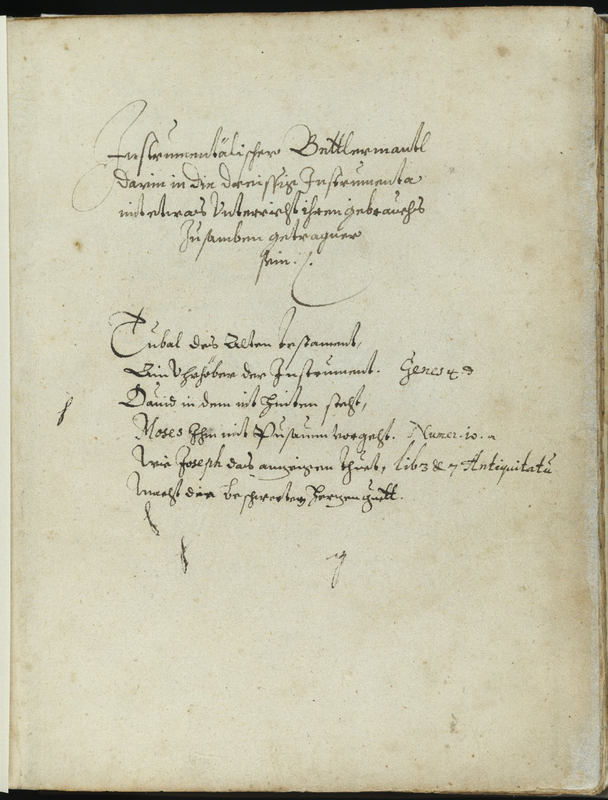 Instrumentälischer Bettlermantl
Darin in die dreissig Instrumenta
mit etwas Unterricht ihren gebrauchs
Zusamben getragner
sein ./.
Tubal des Alten testament,
Ein Vhrhöber der Instrument. Genes 4 d
Dauid in dem nit hinten steht,
Moses Ihm mit Pusaunn vorgeht. Numer. 10. a
Wie Joseph das anzeigen thuet, lib 3 & 7 Antiquitatū
Macht die beschwerten herzen guett.